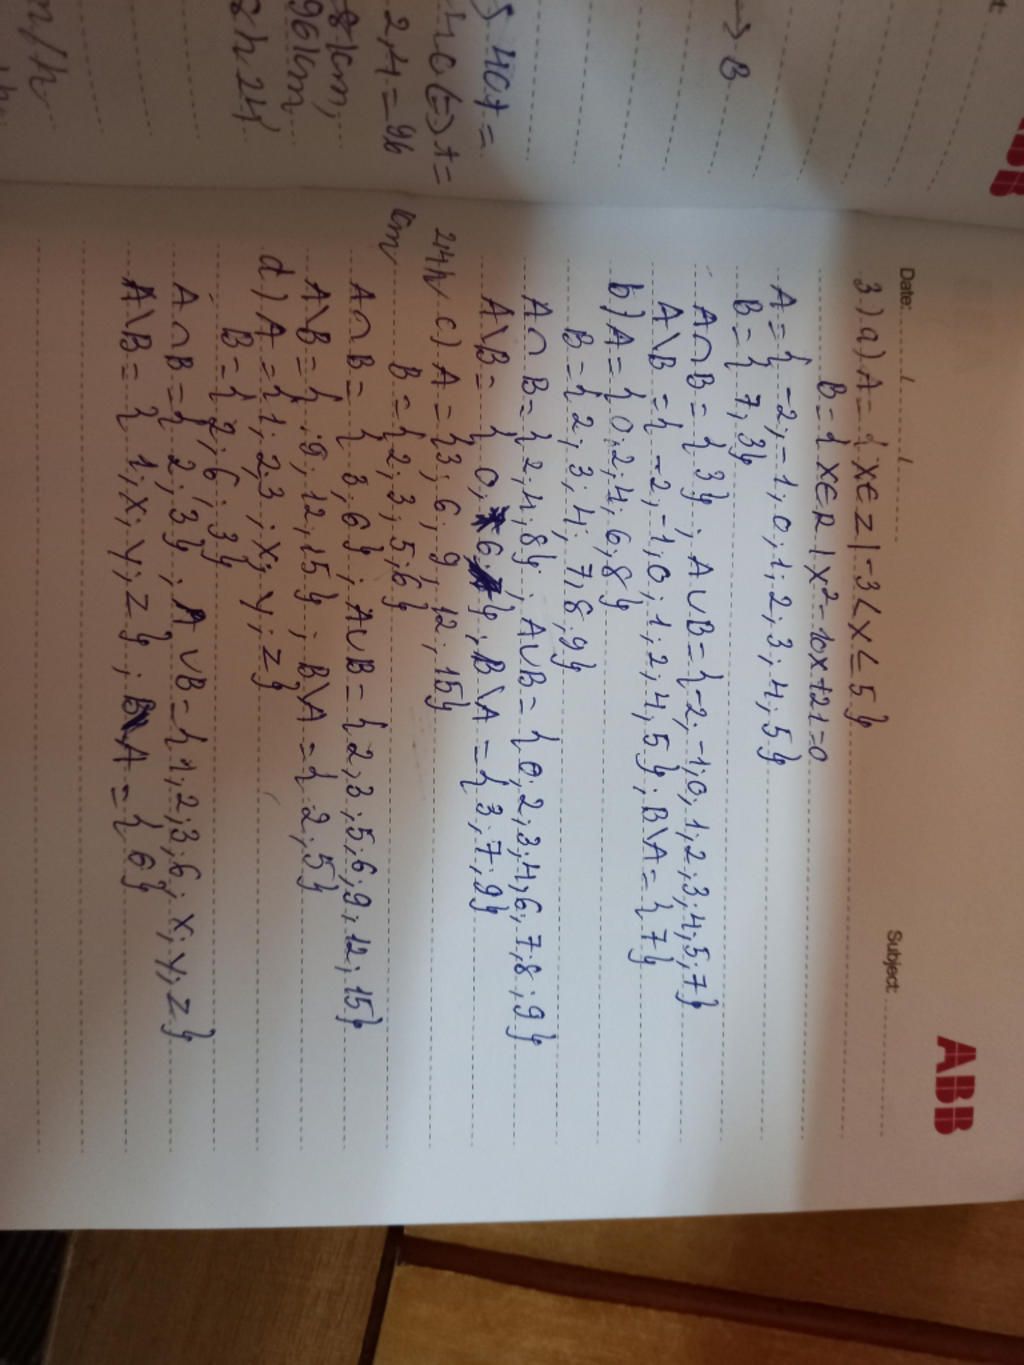 → B
5 40t =
40 ⇔ t =
2,4 = 96
km
2h 24
Date: / /
Subject:
ABB
3) a) A = { x ∈ Z | -3 < x ≤ 5}
B = { x ∈ R | x² - 10x + 21 = 0
A = { -2; -1; 0; 1; 2; 3; 4; 5}
B = { 7; 3}
A ∩ B = { 3}; A ∪ B = {-2; -1; 0; 1; 2; 3; 4; 5; 7}
A \ B = { -2; -1; 0; 1; 2; 4; 5}; B \ A = { 7}
b) A = { 0; 2; 4; 6; 8}
B = { 2; 3; 4; 7; 8; 9}
A ∩ B = { 2; 4; 8}; A ∪ B = { 0; 2; 3; 4; 6; 7; 8; 9}
A \ B = { 0; 6}; B \ A = { 3; 7; 9}
24h
c) A = {3; 6; 9; 12; 15}
km
B = { 2; 3; 5; 6}
A ∩ B = { 3; 6}; A ∪ B = { 2; 3; 5; 6; 9; 12; 15}
A \ B = { 9; 12; 15}; B \ A = { 2; 5}
d) A = { 1; 2; 3; x; y; z}
B = { 2; 6; 3}
A ∩ B = { 2; 3}; A ∪ B = { 1; 2; 3; 6; x; y; z}
A \ B = { 1; x; y; z}; B \ A = { 6}